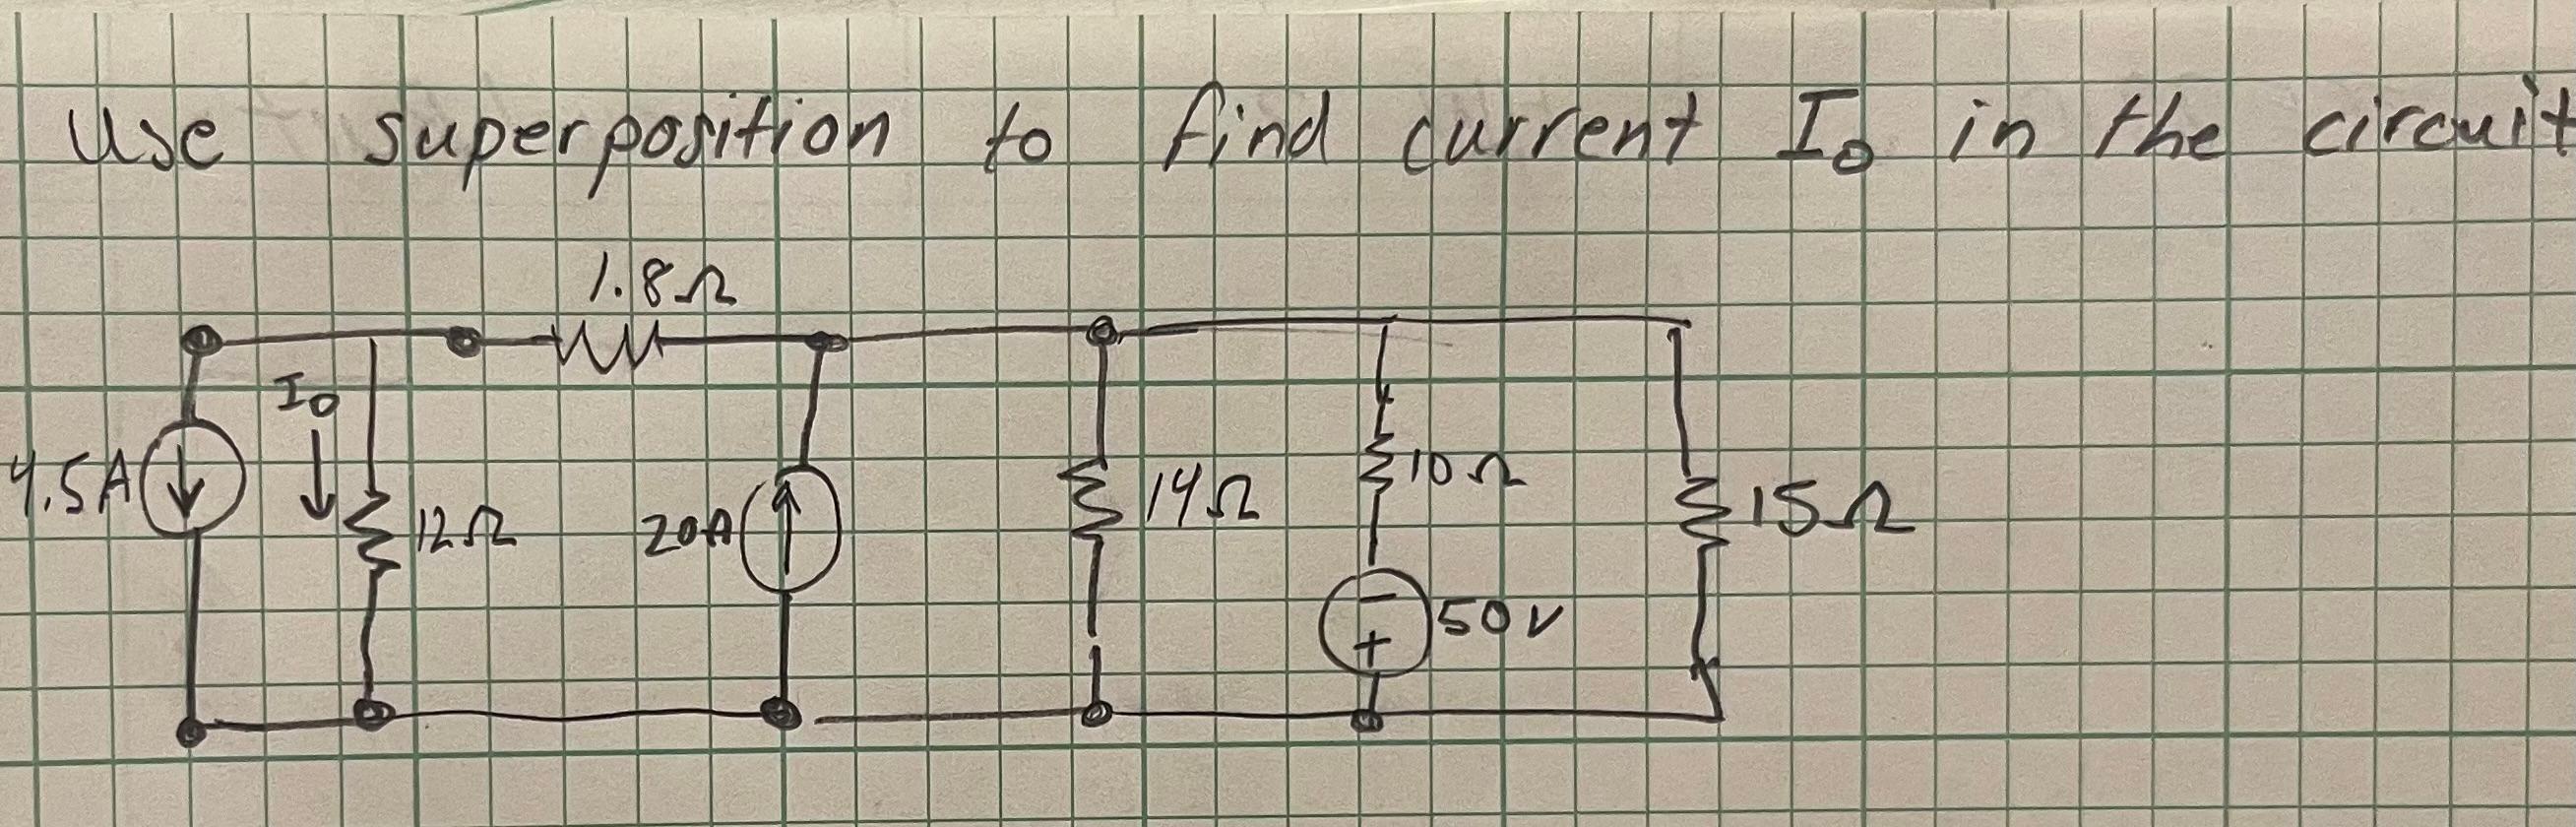 Use superposition to find current I₀ in the circuit
1.8Ω
I₀
4.5A
12Ω
20A
14Ω
10Ω
15Ω
−
50V
+